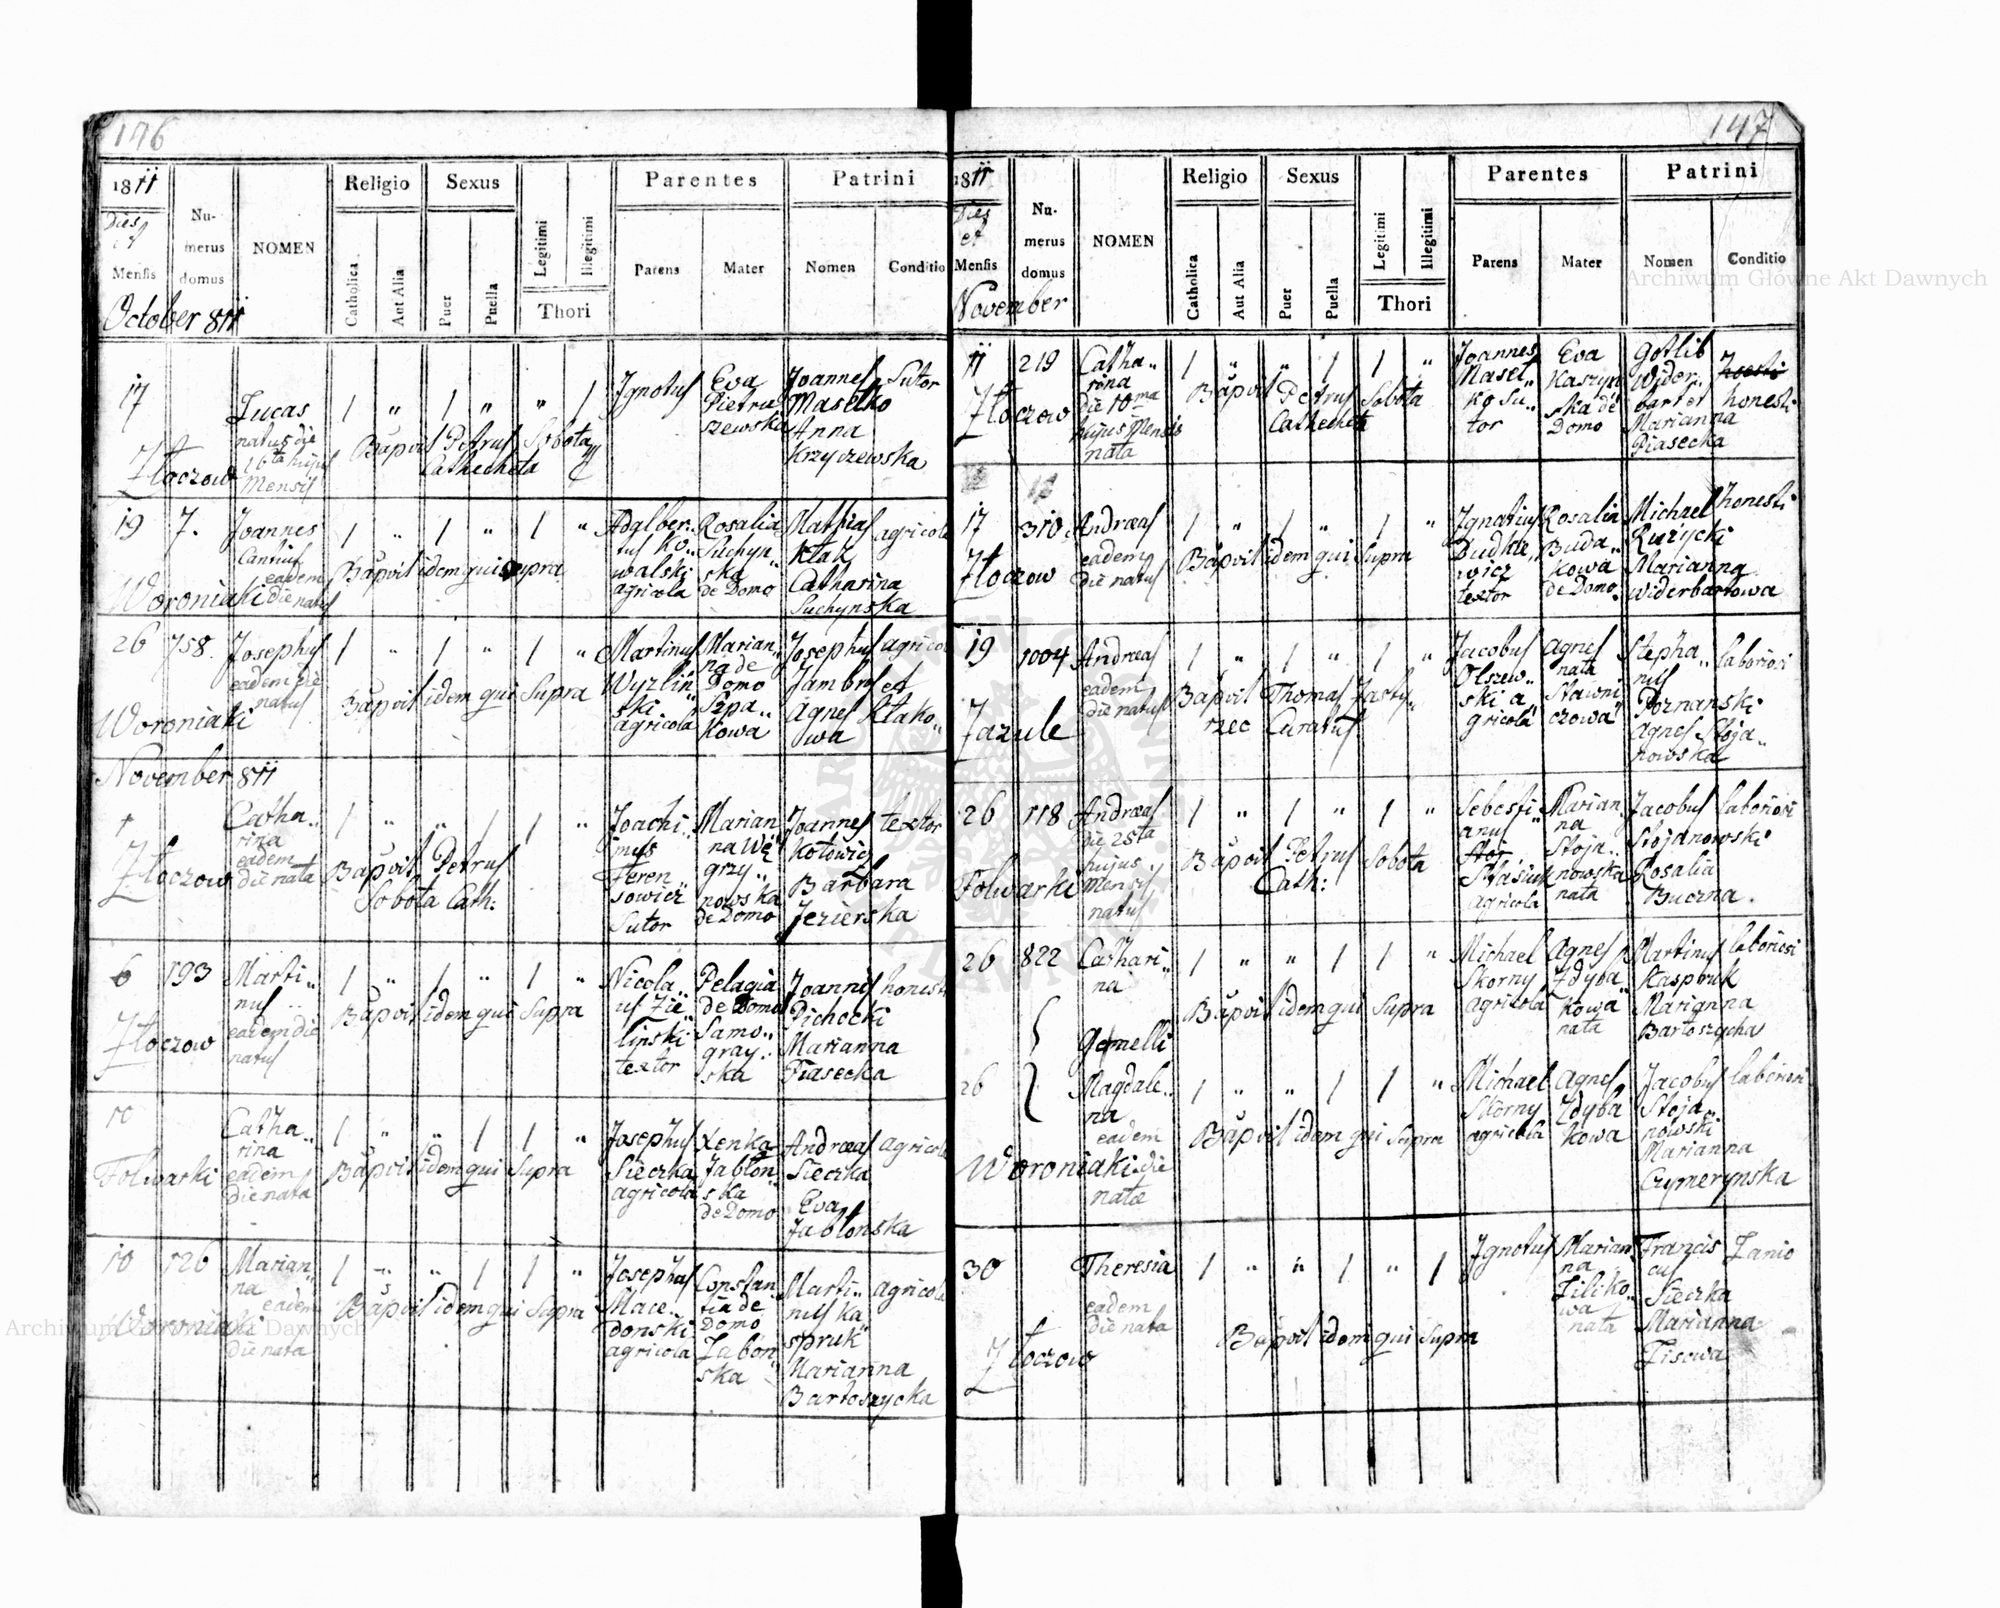 146
1811
Dies et
Mensis
Numerus domus
NOMEN
Religio
Catholica
Aut Alia
Sexus
Puer
Puella
Legitimi
Illegitimi
Thori
Parentes
Parens
Mater
Patrini
Nomen
Conditio
October 811
17
Złoczow
Lucas
natus die
16ta hujus
Mensis
1 " 1 " " 1
Bapvit Petrus Sobota
Cathecheta
Ignotus
Eva
Pietru
szewska
Joannes
Maselko
Anna
Krzyczewska
Sutor
19
7.
Woroniaki
Joannes
Cantius
eadem
die natus
1 " 1 " 1 "
Bapvit idem qui supra
Adalber..
tus Ko..
walski
agricola
Rosalia
Suchyn..
ska
de Domo
Mathias
Ktak
Catharina
Suchynska
agricola
26
758.
Woroniaki
Josephus
eadem die
natus
1 " 1 " 1 "
Bapvit idem qui Supra
Martinus
Wyzlin..
ski
agricola
Marian..
na de
Domo
Szpa..
kowa
Josephus
Jambrus et
Agnes Ktako..
wa
agricol
November 811
1
Złoczow
Catha..
rina
eadem
die nata
1 " " 1 1 "
Bapvit Petrus
Sobota Cath:
Joachi..
mus
Feren..
sowicz
Sutor
Marian
na Wę
grzy..
nowska
de Domo
Joannes
Kotowicz
Barbara
Jezierska
textor
6
193
Złoczow
Marti..
nus
eadem die
natus
1 " 1 " 1 "
Bapvit idem qui Supra
Nicola..
us Zie..
linski
textor
Pelagia
de Domo
Samo..
gray..
ska
Joannes
Pichocki
Marianna
Piasecka
honesti
10
Folwarki
Catha..
rina
eadem
die nata
1 " " 1 1 "
Bapvit idem qui Supra
Josephus
Sieczka
agricola
Xenka
Jablon..
ska
de Domo
Andreas
Sieczka
Eva
Jablonska
agricola
10
126
Woroniaki
Marian..
na
eadem
die nata
1 " " 1 1 "
Bapvit idem qui Supra
Josephus
Mace..
donski
agricola
Constan..
tia de
Domo
Zabon..
ska
Marti..
nus Ka
spruk
Marianna
Bartoszycka
agricola
147
1811
Dies
et
Mensis
Numerus domus
NOMEN
Religio
Catholica
Aut Alia
Sexus
Puer
Puella
Legitimi
Illegitimi
Thori
Parentes
Parens
Mater
Patrini
Nomen
Conditio
November
11
219
Złoczow
Catha..
rina
die 10ma
hujus Mensis
nata
1 " " 1 1 "
Bapvit Petrus Sobota
Cathecheta
Joannes
Masel..
ko Su..
tor
Eva
Kaszyn
ska de
Domo
Gotlib
Wider..
bart et
Marianna
Piasecka
honesti
17
310.
Złoczow
Andreas
eadem
die natus
1 " 1 " 1 "
Bapvit idem qui Supra
Ignatius
Dudkie..
wicz
textor
Rosalia
Buda..
kowa
de Domo
Michael
Ruzycki
Marianna
Widerbartowa
honesti
19
1004
Zazule
Andreas
eadem
die natus
1 " 1 " 1 "
Bapvit Thomas Zasty..
rzec Curatus
Jacobus
Olszew..
ski a
gricola
Agnes
nata
Stawni
czowa
Stepha..
nus
Poznanski
Agnes Stoja..
nowska
laboriosi
26
118
Folwarki
Andreas
die 25ta
hujus
Mensis
natus
1 " 1 " 1 "
Bapvit Petrus Sobota
Cath:
Sebesti..
anus
Stoj
Stasiuk
agricola
Marian
na
Stoja..
nowska
nata
Jacobus
Stojanowski
Rosalia
Buczna.
laboriosi
26
822
Cathari..
na
1 " " 1 1 "
Bapvit idem qui Supra
Michael
Skorny
agricola
Agnes
Zdyba
kowa
nata
Martinus
Kaspruk
Marianna
Bartoszycha
laboriosi
Gemelli
26
Woroniaki
Magdale..
na
eadem
die
natæ
1 " " 1 1 "
Bapvit idem qui Supra
Michael
Skorny
agricola
Agnes
Zdyba
kowa
Jacobus
Stoja..
nowski
Marianna
Czymerynska
laboriosi
30
Złoczow
Theresia
eadem
die nata
1 " " 1 " 1
Bapvit idem qui Supra
Ignotus
Marian
na
Ziliko..
wa
nata
Francis
cus
Sieczka
Marianna
Lisowa
Lanio
Archiwum Główne Akt Dawnych
Archiwum Główne Akt Dawnych